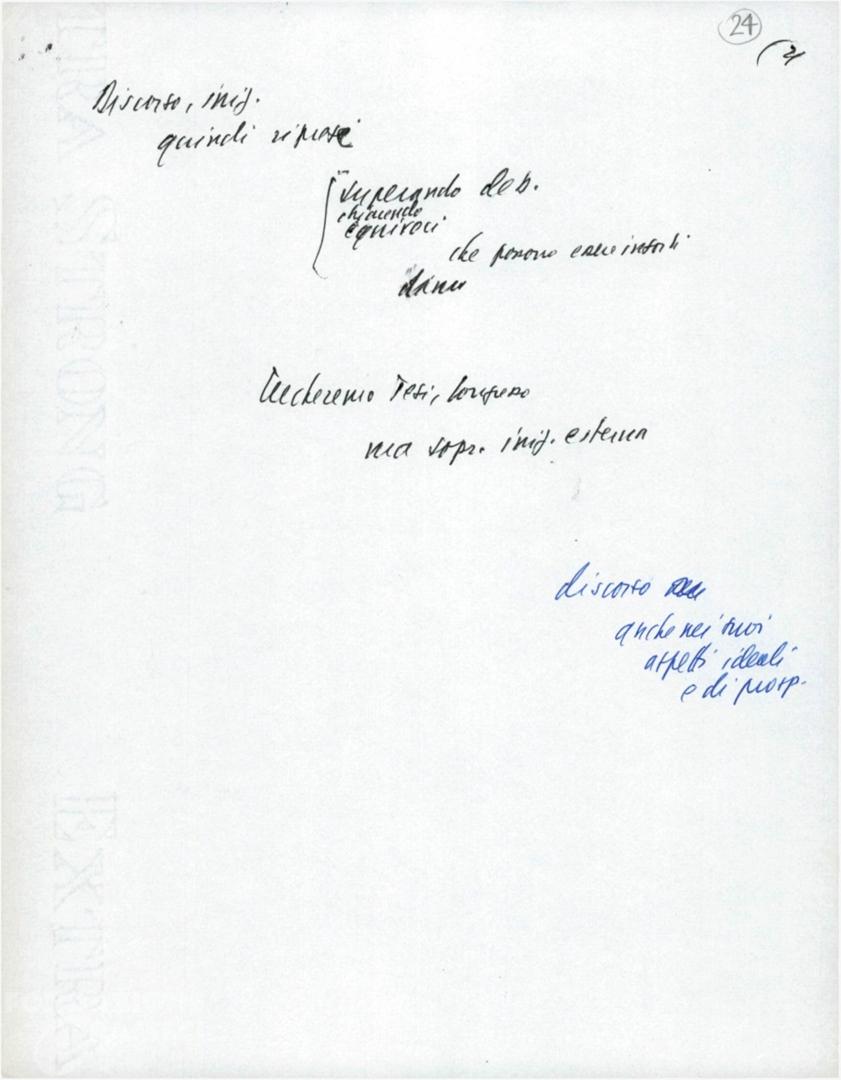 24
(2
Discorso, iniz.
quindi ripresi
superando deb.
chiarendo
equivoci
che possono essere insorti
Tesi, Congresso
ma sopr. iniz. esterna
discorso
anche nei suoi
aspetti ideali
e di prosp.
EXTRA STRONG